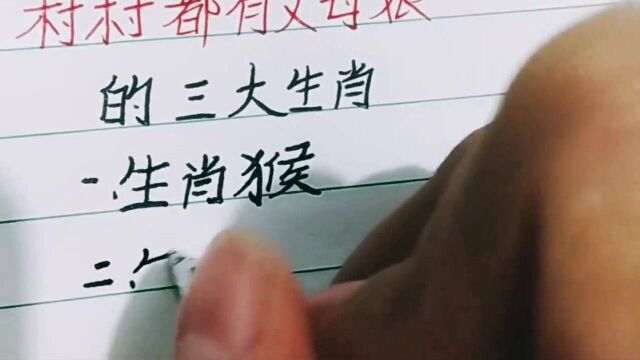 村村都有丈母娘
的三大生肖
一.生肖猴
二.